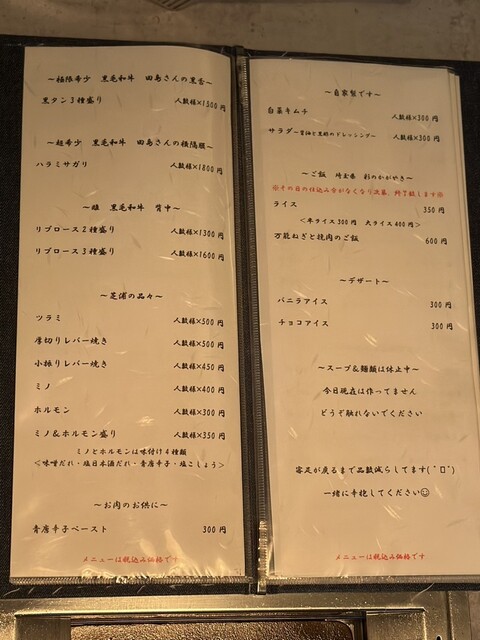 ～極限希少　黒毛和牛　田島さんの黒舌～
黒タン３種盛り　人数様×1500円
～超希少　黒毛和牛　田島さんの横隔膜～
ハラミサガリ　人数様×1800円
～雌　黒毛和牛　背中～
リブロース２種盛り　人数様×1300円
リブロース３種盛り　人数様×1600円
～芝浦の品々～
ツラミ　人数様×500円
厚切りレバー焼き　人数様×500円
小振りレバー焼き　人数様×450円
ミノ　人数様×400円
ホルモン　人数様×300円
ミノ＆ホルモン盛り　人数様×350円
ミノとホルモンは味付け４種類
＜味噌だれ・塩日本酒だれ・青唐辛子・塩こしょう＞
～お肉のお供に～
青唐辛子ペースト　300円
メニューは税込み価格です
～自家製です～
白菜キムチ　人数様×300円
サラダ～醤油と黒酢のドレッシング～　人数様×300円
～ご飯　埼玉県　彩のかがやき～
※その日の仕込み分がなくなり次第、終了致します※
ライス　350円
＜半ライス300円　大ライス400円＞
万能ねぎと挽肉のご飯　600円
～デザート～
バニラアイス　300円
チョコアイス　300円
～スープ＆麺類は休止中～
今日現在は作ってません
どうぞ触れないでください
客足が戻るまで品数減らしてます(ﾟロﾟ)
一緒に辛抱してください☺
メニューは税込み価格です